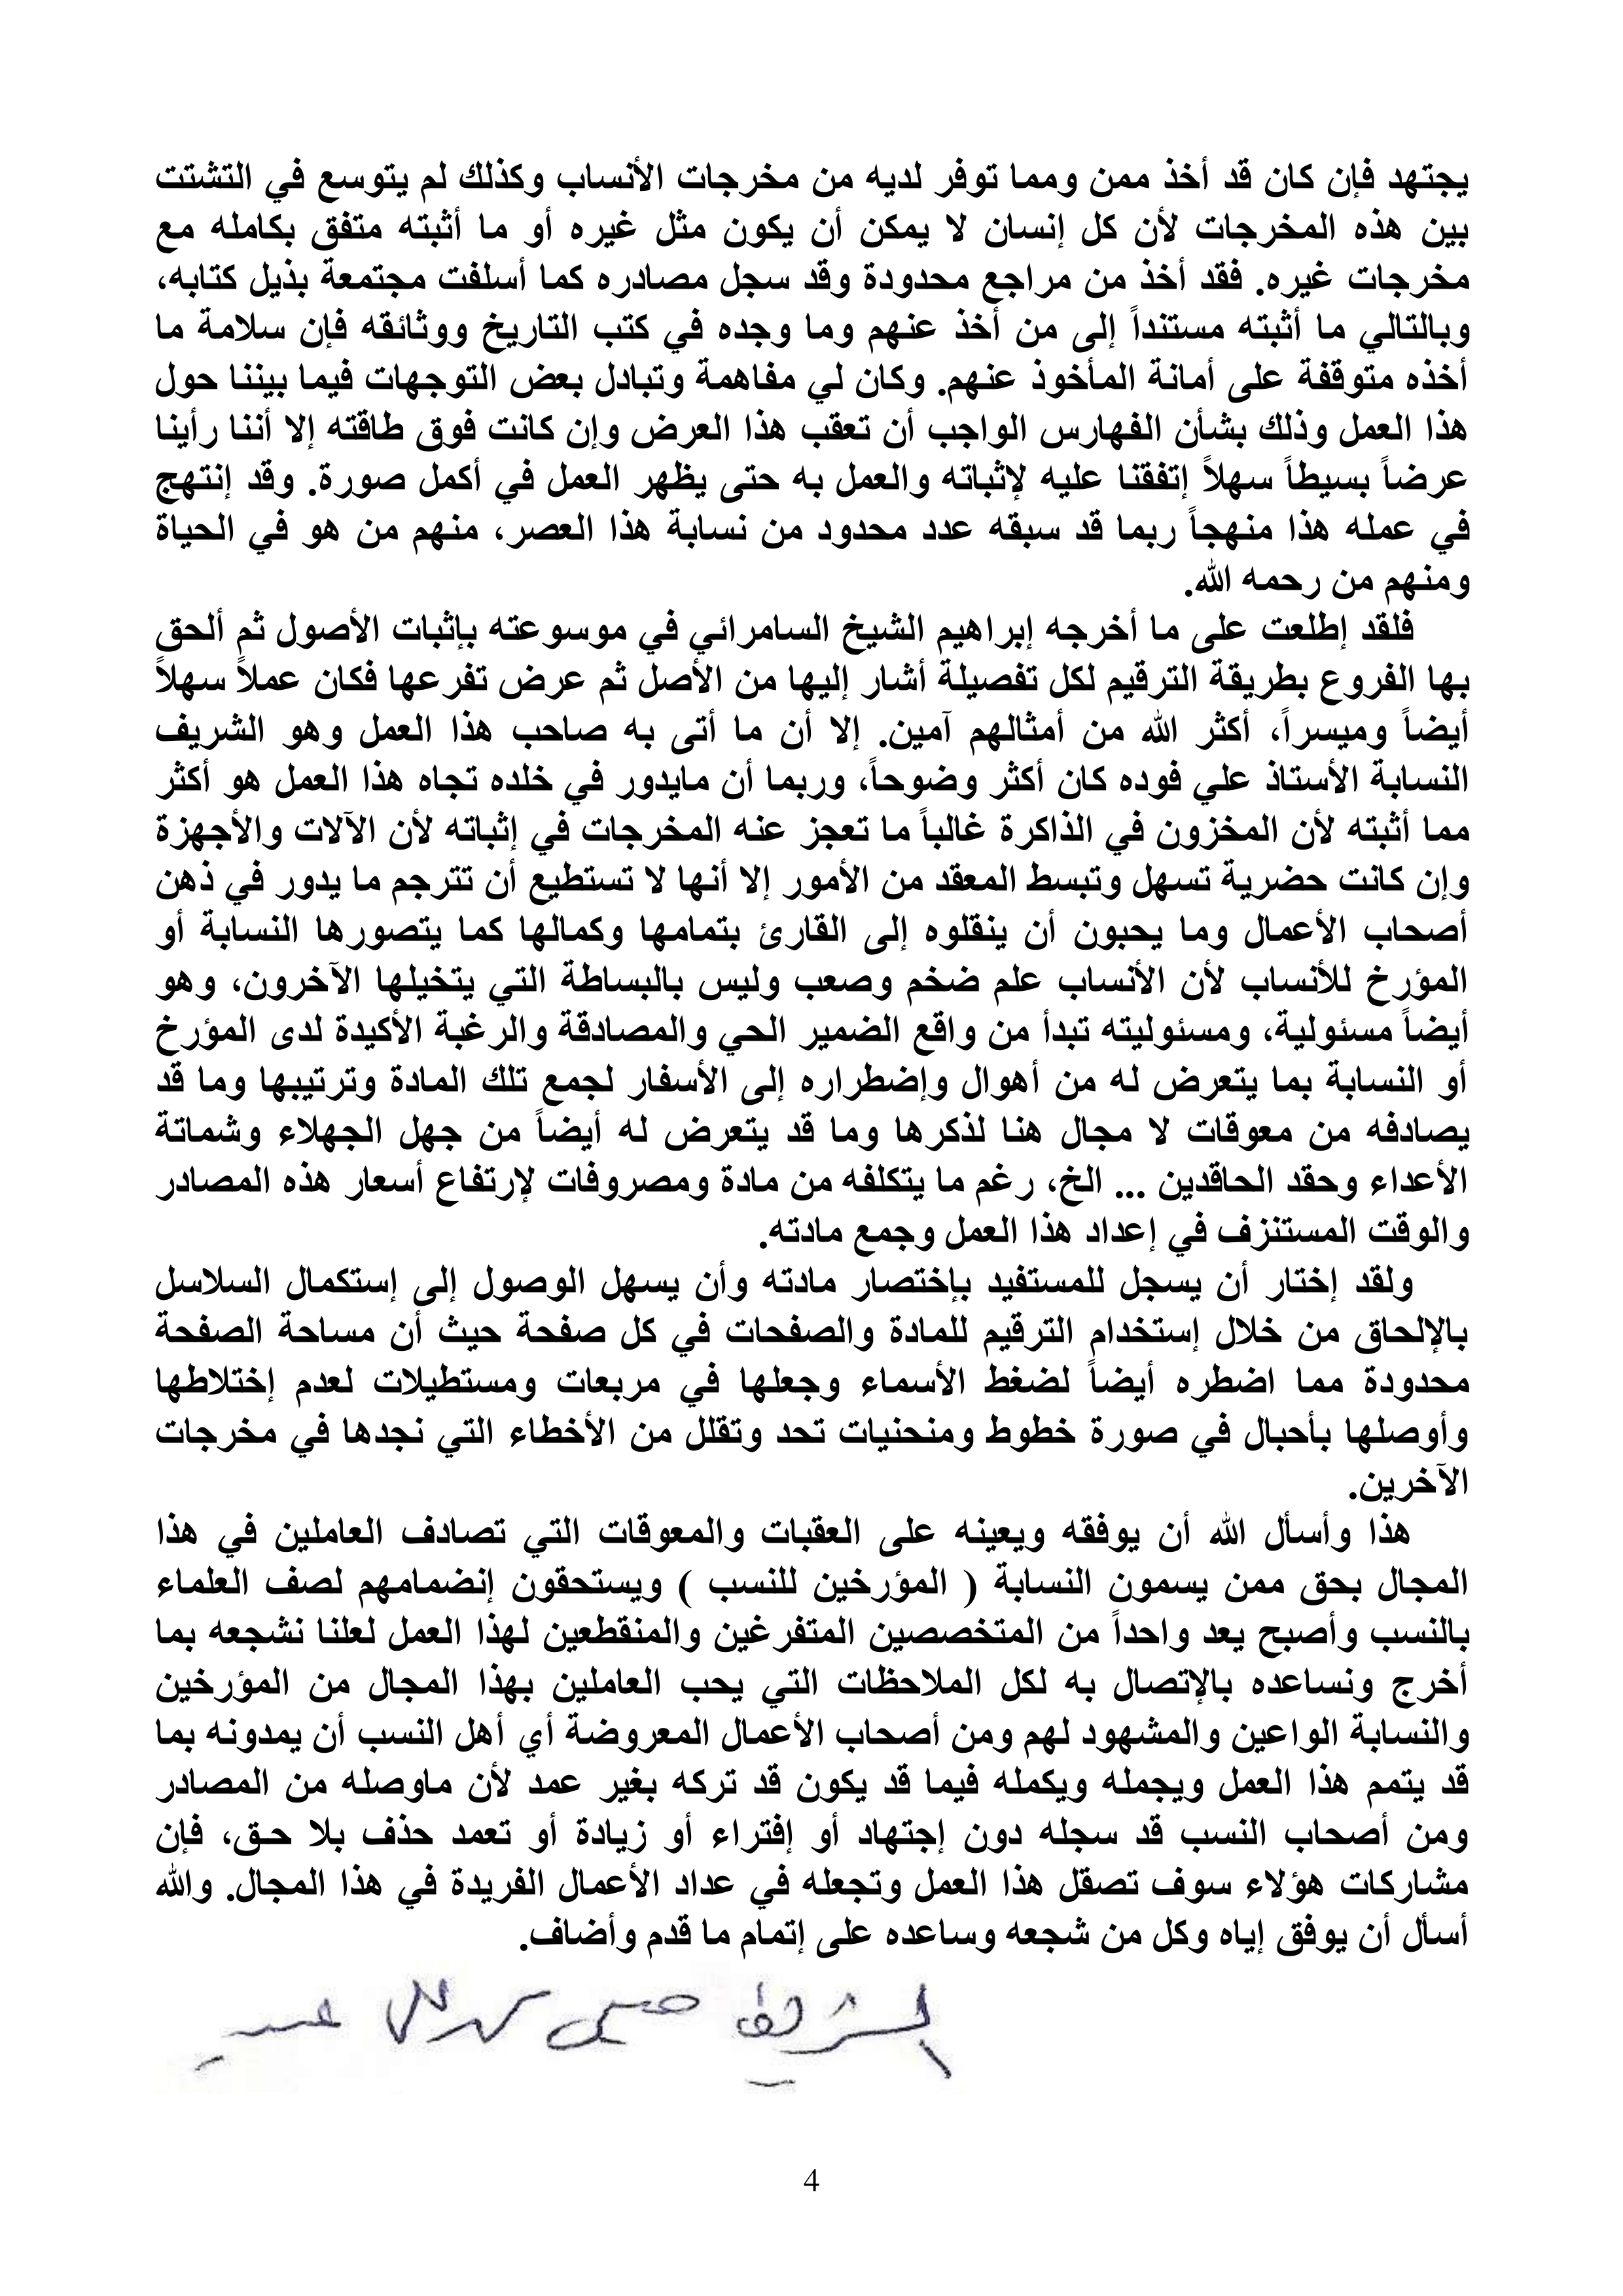 يجتهد فإن كان قد أخذ ممن ومما توفر لديه من مخرجات الأنساب وكذلك لم يتوسع في التشتت
بين هذه المخرجات لأن كل إنسان لا يمكن أن يكون مثل غيره أو ما أثبته متفق بكامله مع
مخرجات غيره. فقد أخذ من مراجع محدودة وقد سجل مصادره كما أسلفت مجتمعة بذيل كتابه،
وبالتالي ما أثبته مستنداً إلى من أخذ عنهم وما وجده في كتب التاريخ ووثائقه فإن سلامة ما
أخذه متوقفة على أمانة المأخوذ عنهم. وكان لي مفاهمة وتبادل بعض التوجهات فيما بيننا حول
هذا العمل وذلك بشأن الفهارس الواجب أن تعقب هذا العرض وإن كانت فوق طاقته إلا أننا رأينا
عرضاً بسيطاً سهلاً إتفقنا عليه لإثباته والعمل به حتى يظهر العمل في أكمل صورة. وقد إنتهج
في عمله هذا منهجاً ربما قد سبقه عدد محدود من نسابة هذا العصر، منهم من هو في الحياة
ومنهم من رحمه الله.
فلقد إطلعت على ما أخرجه إبراهيم الشيخ السامرائي في موسوعته بإثبات الأصول ثم ألحق
بها الفروع بطريقة الترقيم لكل تفصيلة أشار إليها من الأصل ثم عرض تفرعها فكان عملاً سهلاً
أيضاً وميسراً، أكثر الله من أمثالهم آمين. إلا أن ما أتى به صاحب هذا العمل وهو الشريف
النسابة الأستاذ علي فوده كان أكثر وضوحاً، وربما أن مايدور في خلده تجاه هذا العمل هو أكثر
مما أثبته لأن المخزون في الذاكرة غالباً ما تعجز عنه المخرجات في إثباته لأن الآلات والأجهزة
وإن كانت حضرية تسهل وتبسط المعقد من الأمور إلا أنها لا تستطيع أن تترجم ما يدور في ذهن
أصحاب الأعمال وما يحبون أن ينقلوه إلى القارئ بتمامها وكمالها كما يتصورها النسابة أو
المؤرخ للأنساب لأن الأنساب علم ضخم وصعب وليس بالبساطة التي يتخيلها الآخرون، وهو
أيضاً مسئولية، ومسئوليته تبدأ من واقع الضمير الحي والمصادقة والرغبة الأكيدة لدى المؤرخ
أو النسابة بما يتعرض له من أهوال وإضطراره إلى الأسفار لجمع تلك المادة وترتيبها وما قد
يصادفه من معوقات لا مجال هنا لذكرها وما قد يتعرض له أيضاً من جهل الجهلاء وشماتة
الأعداء وحقد الحاقدين ... الخ، رغم ما يتكلفه من مادة ومصروفات لإرتفاع أسعار هذه المصادر
والوقت المستنزف في إعداد هذا العمل وجمع مادته.
ولقد إختار أن يسجل للمستفيد بإختصار مادته وأن يسهل الوصول إلى إستكمال السلاسل
بالإلحاق من خلال إستخدام الترقيم للمادة والصفحات في كل صفحة حيث أن مساحة الصفحة
محدودة مما اضطره أيضاً لضغط الأسماء وجعلها في مربعات ومستطيلات لعدم إختلاطها
وأوصلها بأحبال في صورة خطوط ومنحنيات تحد وتقلل من الأخطاء التي نجدها في مخرجات
الآخرين.
هذا وأسأل الله أن يوفقه ويعينه على العقبات والمعوقات التي تصادف العاملين في هذا
المجال بحق ممن يسمون النسابة ( المؤرخين للنسب ) ويستحقون إنضمامهم لصف العلماء
بالنسب وأصبح يعد واحداً من المتخصصين المتفرغين والمنقطعين لهذا العمل لعلنا نشجعه بما
أخرج ونساعده بالإتصال به لكل الملاحظات التي يحب العاملين بهذا المجال من المؤرخين
والنسابة الواعين والمشهود لهم ومن أصحاب الأعمال المعروضة أي أهل النسب أن يمدونه بما
قد يتمم هذا العمل ويجمله ويكمله فيما قد يكون قد تركه بغير عمد لأن ماوصله من المصادر
ومن أصحاب النسب قد سجله دون إجتهاد أو إفتراء أو زيادة أو تعمد حذف بلا حـق، فإن
مشاركات هؤلاء سوف تصقل هذا العمل وتجعله في عداد الأعمال الفريدة في هذا المجال. والله
أسأل أن يوفق إياه وكل من شجعه وساعده على إتمام ما قدم وأضاف.
الشريف
4